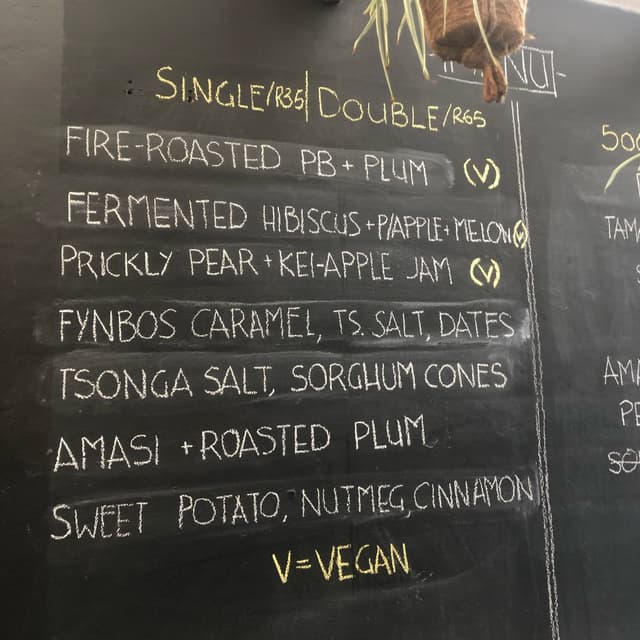 SINGLE/R35|DOUBLE/R65
FIRE-ROASTED PB + PLUM (V)
FERMENTED HIBISCUS + P/APPLE + MELON (V)
PRICKLY PEAR + KEI-APPLE JAM (V)
FYNBOS CARAMEL, TS. SALT, DATES
TSONGA SALT, SORGHUM CONES
AMASI + ROASTED PLUM
SWEET POTATO, NUTMEG, CINNAMON
V = VEGAN